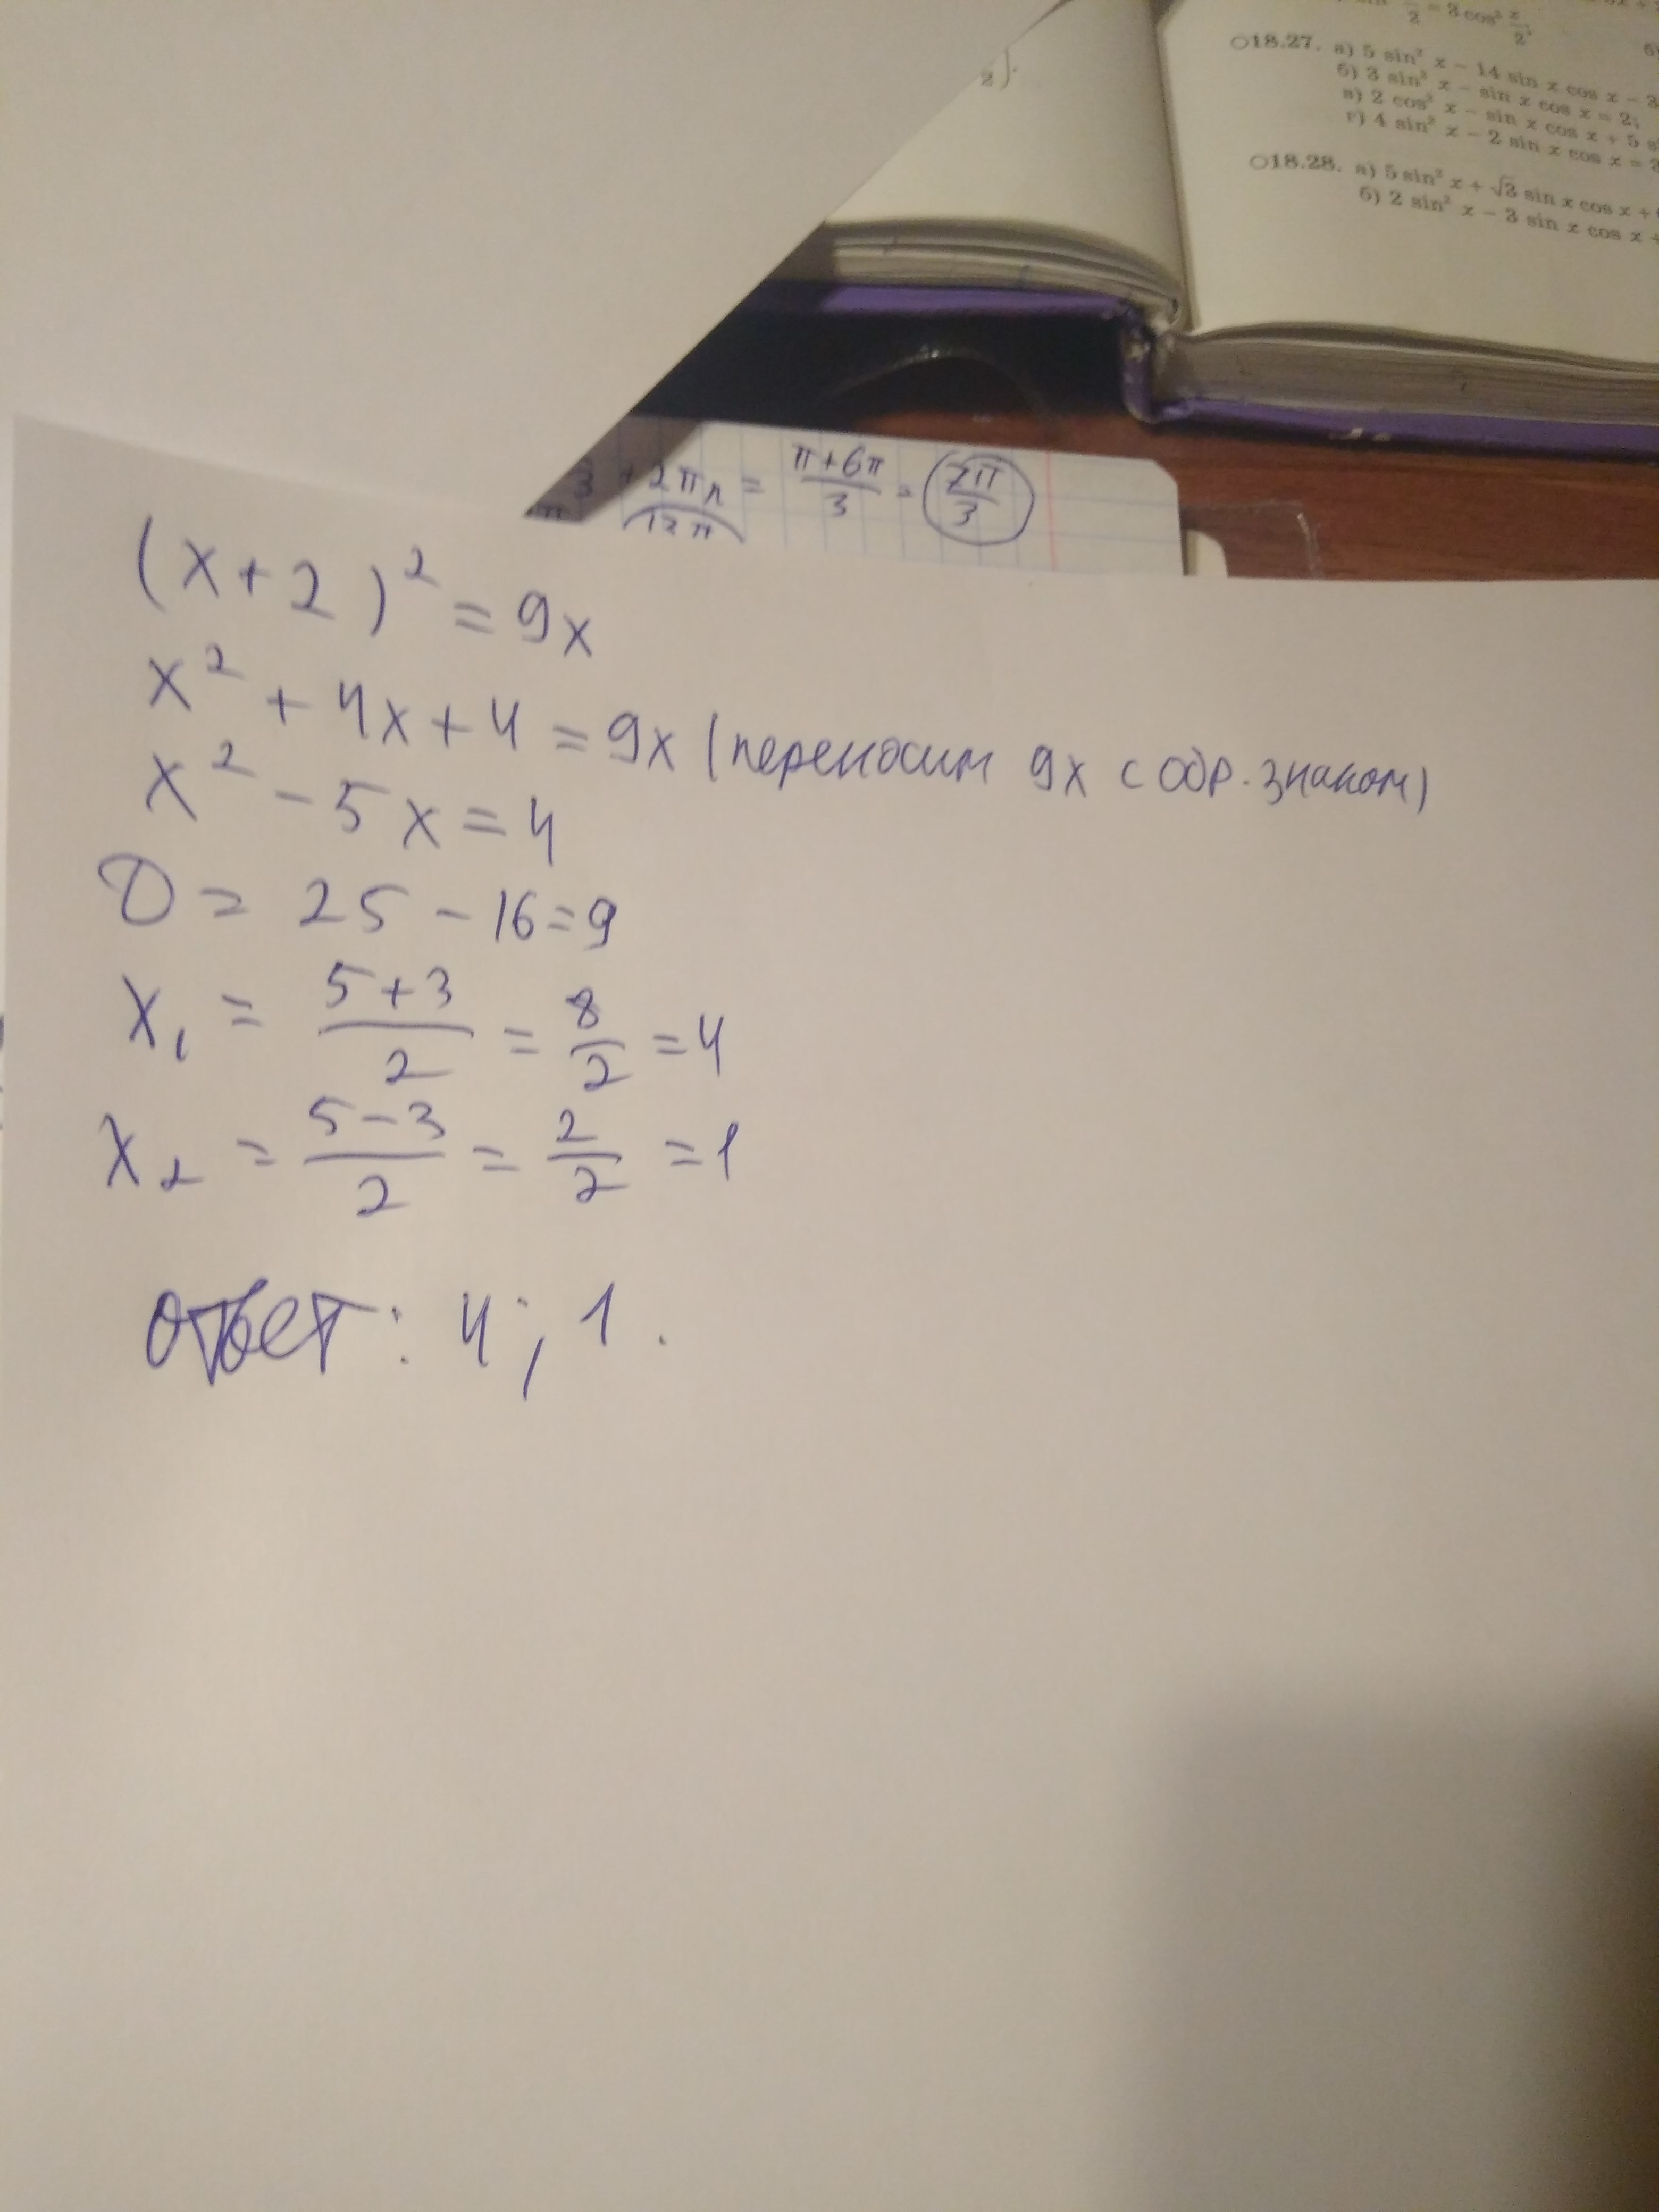 2).
2 = 3 cos² x/2;
18.27. а) 5 sin² x − 14 sin x cos x − 3
б) 3 sin² x − sin x cos x = 2;
в) 2 cos² x − sin x cos x + 5 s
г) 4 sin² x − 2 sin x cos x =
18.28. а) 5 sin² x + √3 sin x cos x +
б) 2 sin² x − 3 sin x cos x +
3 + 2πn = π+6π/3 = 7π/3
12π
(x+2)² = 9x
x² + 4x + 4 = 9x (переносим 9x с обр. знаком)
x² − 5x = 4
D = 25 − 16 = 9
x₁ = 5+3/2 = 8/2 = 4
x₂ = 5−3/2 = 2/2 = 1
ответ: 4; 1.